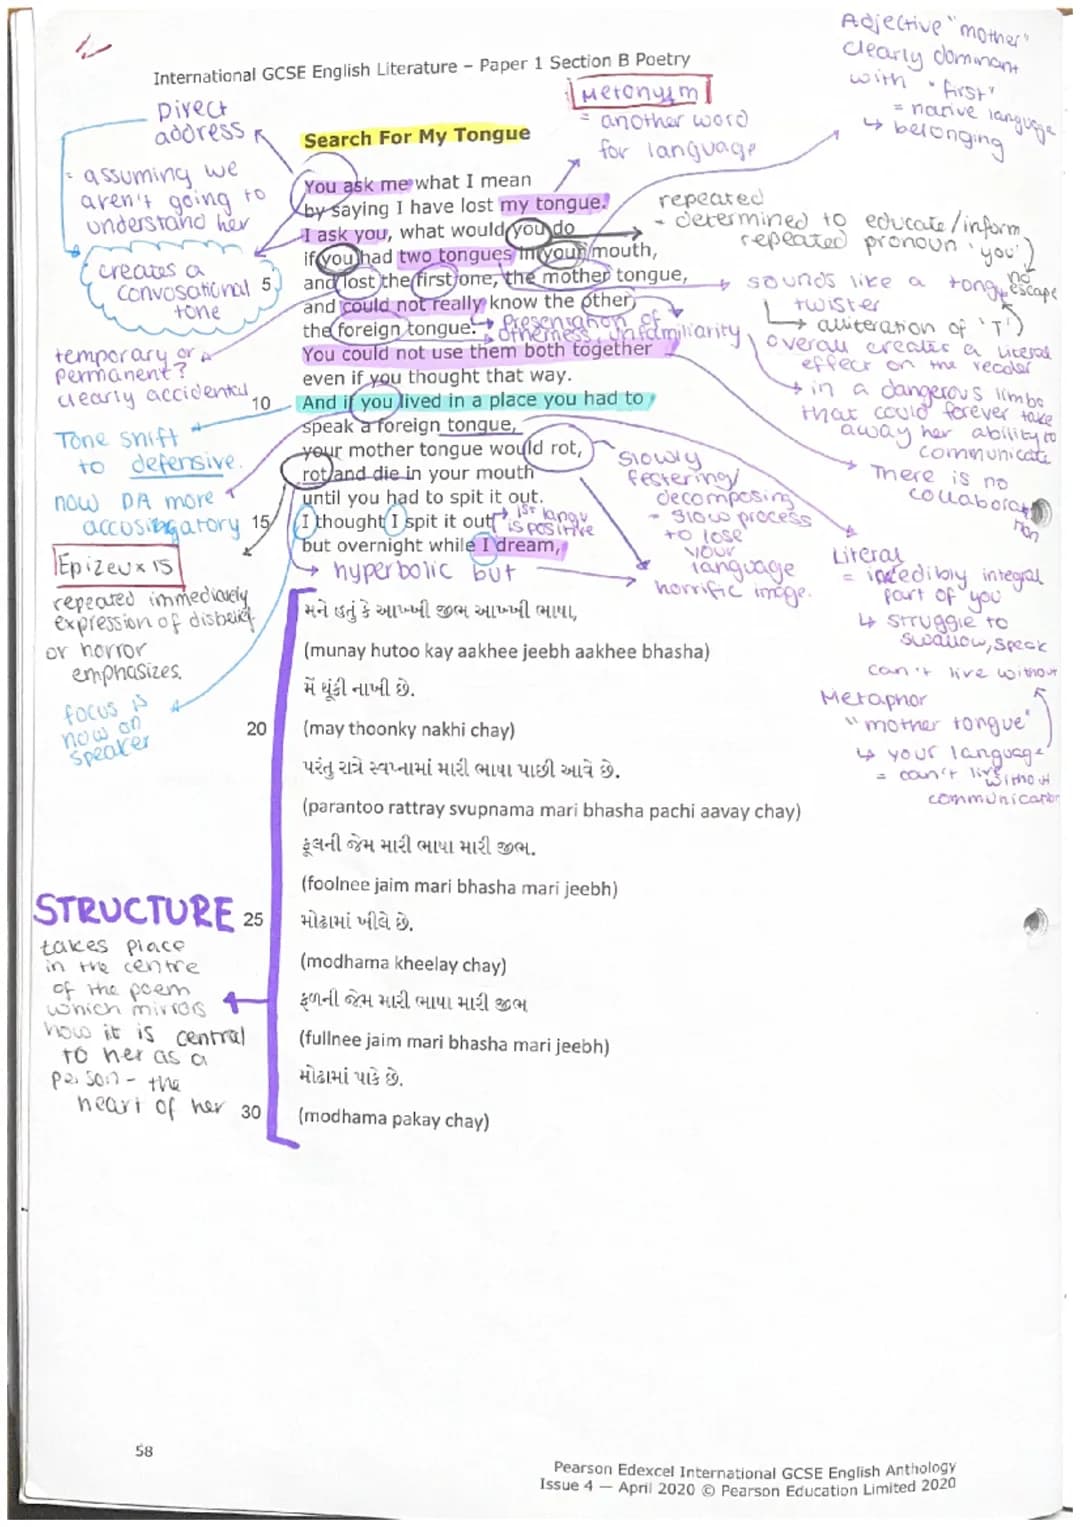 International GCSE English Literature – Paper 1 Section B Poetry
Adjective "mother"
clearly dominant
with "first"
= native language
↳ belonging
Metonym
= another word
for language
Direct
address
= assuming we
aren't going to
understand her
creates a
convosational
tone
temporary or
permanent?
clearly accidental
Tone shift
to defensive.
now DA more
accusingatory
Epizeuxis
repeated immediately
expression of disbelief
or horror
emphasizes.
focus is
now on
speaker
Search For My Tongue
You ask me what I mean
by saying I have lost my tongue.
I ask you, what would you do
if you had two tongues in your mouth,
5 and lost the first one, the mother tongue,
and could not really know the other,
the foreign tongue.
Presentation of
otherness, unfamiliarity
You could not use them both together
even if you thought that way.
10 And if you lived in a place you had to
speak a foreign tongue,
your mother tongue would rot,
rot and die in your mouth
until you had to spit it out.
15 I thought I spit it out
1st langu
is positive
but overnight while I dream,
hyperbolic but
horrific image.
repeated
- determined to educate/inform
repeated pronoun 'you'
no
escape
sounds like a tongue
twister
↳ alliteration of 'T'
overall creates a literal
effect on the reader
in a dangerous limbo
that could forever take
away her ability to
communicate
There is no
collaboration
slowly
festering/
decomposing
- slow process
to lose
your
language
Literal
= incredibly integral
part of you
↳ struggle to
swallow, speak
can't live without
Metaphor
"mother tongue"
↳ your language
= can't live without
communication
મને હતું કે આખ્ખી જીભ આખ્ખી ભાષા,
(munay hutoo kay aakhee jeebh aakhee bhasha)
મેં થૂંકી નાખી છે.
20 (may thoonky nakhi chay)
પરંતુ રાત્રે સ્વપ્નામાં મારી ભાષા પાછી આવે છે.
(parantoo rattray svupnama mari bhasha pachi aavay chay)
ફૂલની જેમ મારી ભાષા મારી જીભ.
(foolnee jaim mari bhasha mari jeebh)
25 મોઢામાં ખીલે છે.
(modhama kheelay chay)
ફળની જેમ મારી ભાષા મારી જીભ
(fullnee jaim mari bhasha mari jeebh)
મોઢામાં પાકે છે.
30 (modhama pakay chay)
STRUCTURE
takes place
in the centre
of the poem
which mirrors
how it is central
to her as a
person - the
heart of her
58
Pearson Edexcel International GCSE English Anthology
Issue 4 — April 2020 © Pearson Education Limited 2020